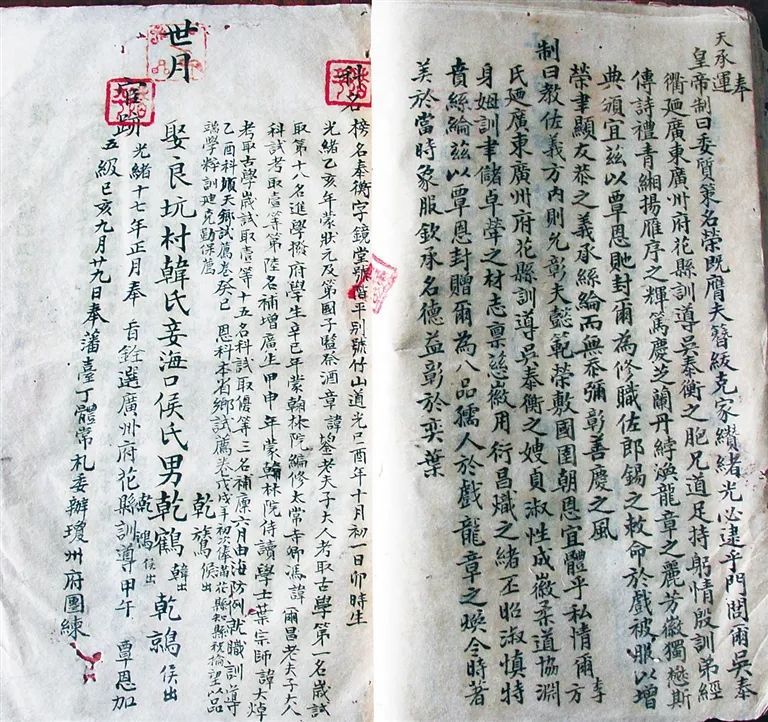 奉
天承運
皇帝制曰委質策名榮既膺夫簪紱克家纘緒光必逮乎門閭爾吳奉
衢廼廣東廣州府花縣訓導吳奉衡之胞兄道足持躬情殷訓弟經
傳詩禮青緗揚雁序之輝篤慶芝蘭丹綍煥龍章之麗芳徽獨懋斯
典頒宜茲以覃恩貤封爾為修職佐郎錫之敕命於戲被服以增
榮聿顯友恭之義承絲綸而無忝彌彰善慶之風
制曰教佐義方內則允彰夫懿範榮敷國圄朝恩宜體乎私情爾李方
氏廼廣東廣州府花縣訓導吳奉衡之嫂貞淑性成徽柔道協淵
身姆訓聿儲卓犖之材志稟慈徽用衍昌熾之緒丕昭淑慎特
賁絲綸茲以覃恩封贈爾為八品孺人於戲龍章之煥今時著
美於當時象服欽承名德益彰於奕葉
科名 榜名奉衡字鏡堂號階平別號竹山道光己酉年十月初一日卯時生
光緒乙亥年蒙狀元及第國子監祭酒章諱鋆老夫子大人考取古學第一名歲試
取第十八名進學撥府學生辛巳年蒙翰林院編修太常寺卿馮諱爾昌老夫子大人
科試考取壹等第陸名補增廣生甲申年蒙翰林院侍讀學士葉宗師諱大焯
考取古學歲試取壹等十五名科試取優等三名補廩六月由海防例就職訓導
乙酉科順天鄉試薦卷癸巳恩科本省鄉試薦卷戊戌年初次俸滿花縣知縣稅倫望以品
端學粹訓迪克勤保薦
世月
乾 侯出
娶良坑村韓氏妾海口侯氏男乾鶴韓出 乾 侯出
乾鴻侯出
宦跡 光緒十七年正月奉 旨銓選廣州府花縣訓導甲午 覃恩加
五級已亥九月廿九日奉藩臺丁體常札委辦瓊州府團練